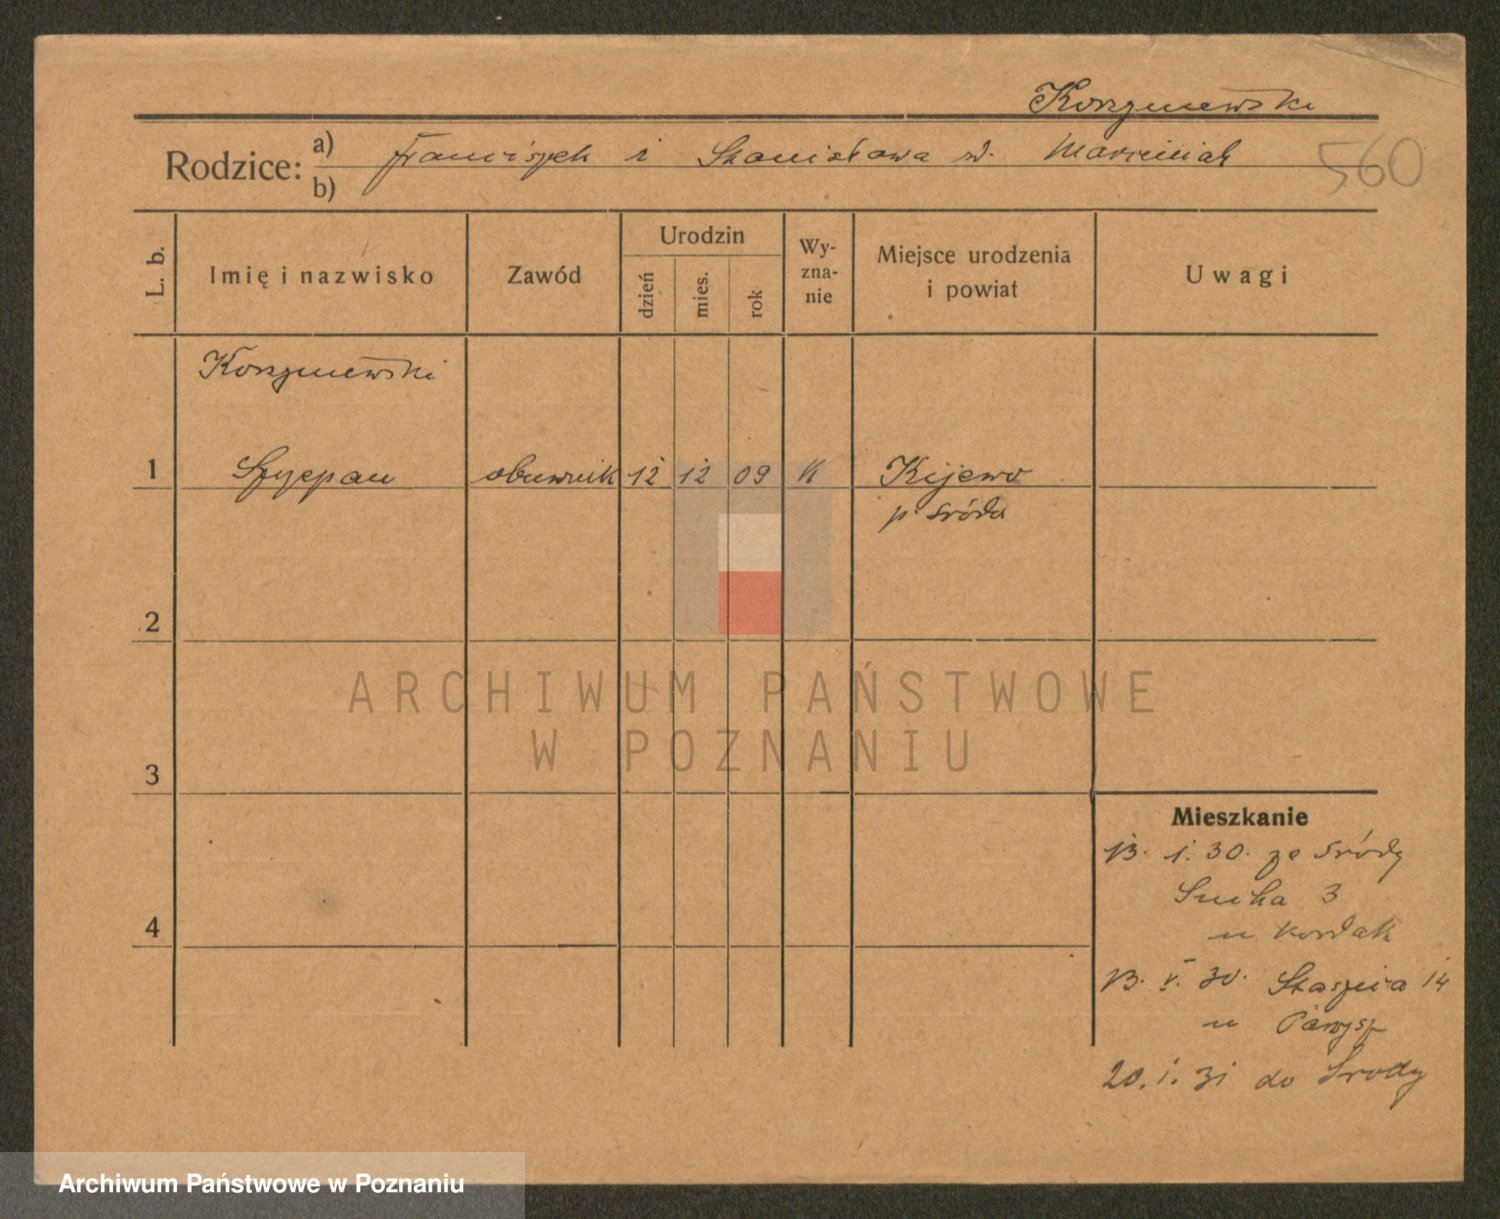 Korzniewski
Rodzice: a) Franciszek i Stanisława z d. Marciniak
b)
560
L. b. Imię i nazwisko Zawód Urodzin dzień mies. rok Wy-zna-nie Miejsce urodzenia i powiat Uwagi
Korzniewski
1 Szczepan obuwnik 12 12 09 K Kijewo
p. Środa
2
ARCHIWUM PAŃSTWOWE
W POZNANIU
3
Mieszkanie
13. 1. 30. ze Środy
Sucha 3
4
u Kordak
13. V. 30. Staszica 14
u
20. 1. 31 do Środy
Archiwum Państwowe w Poznaniu